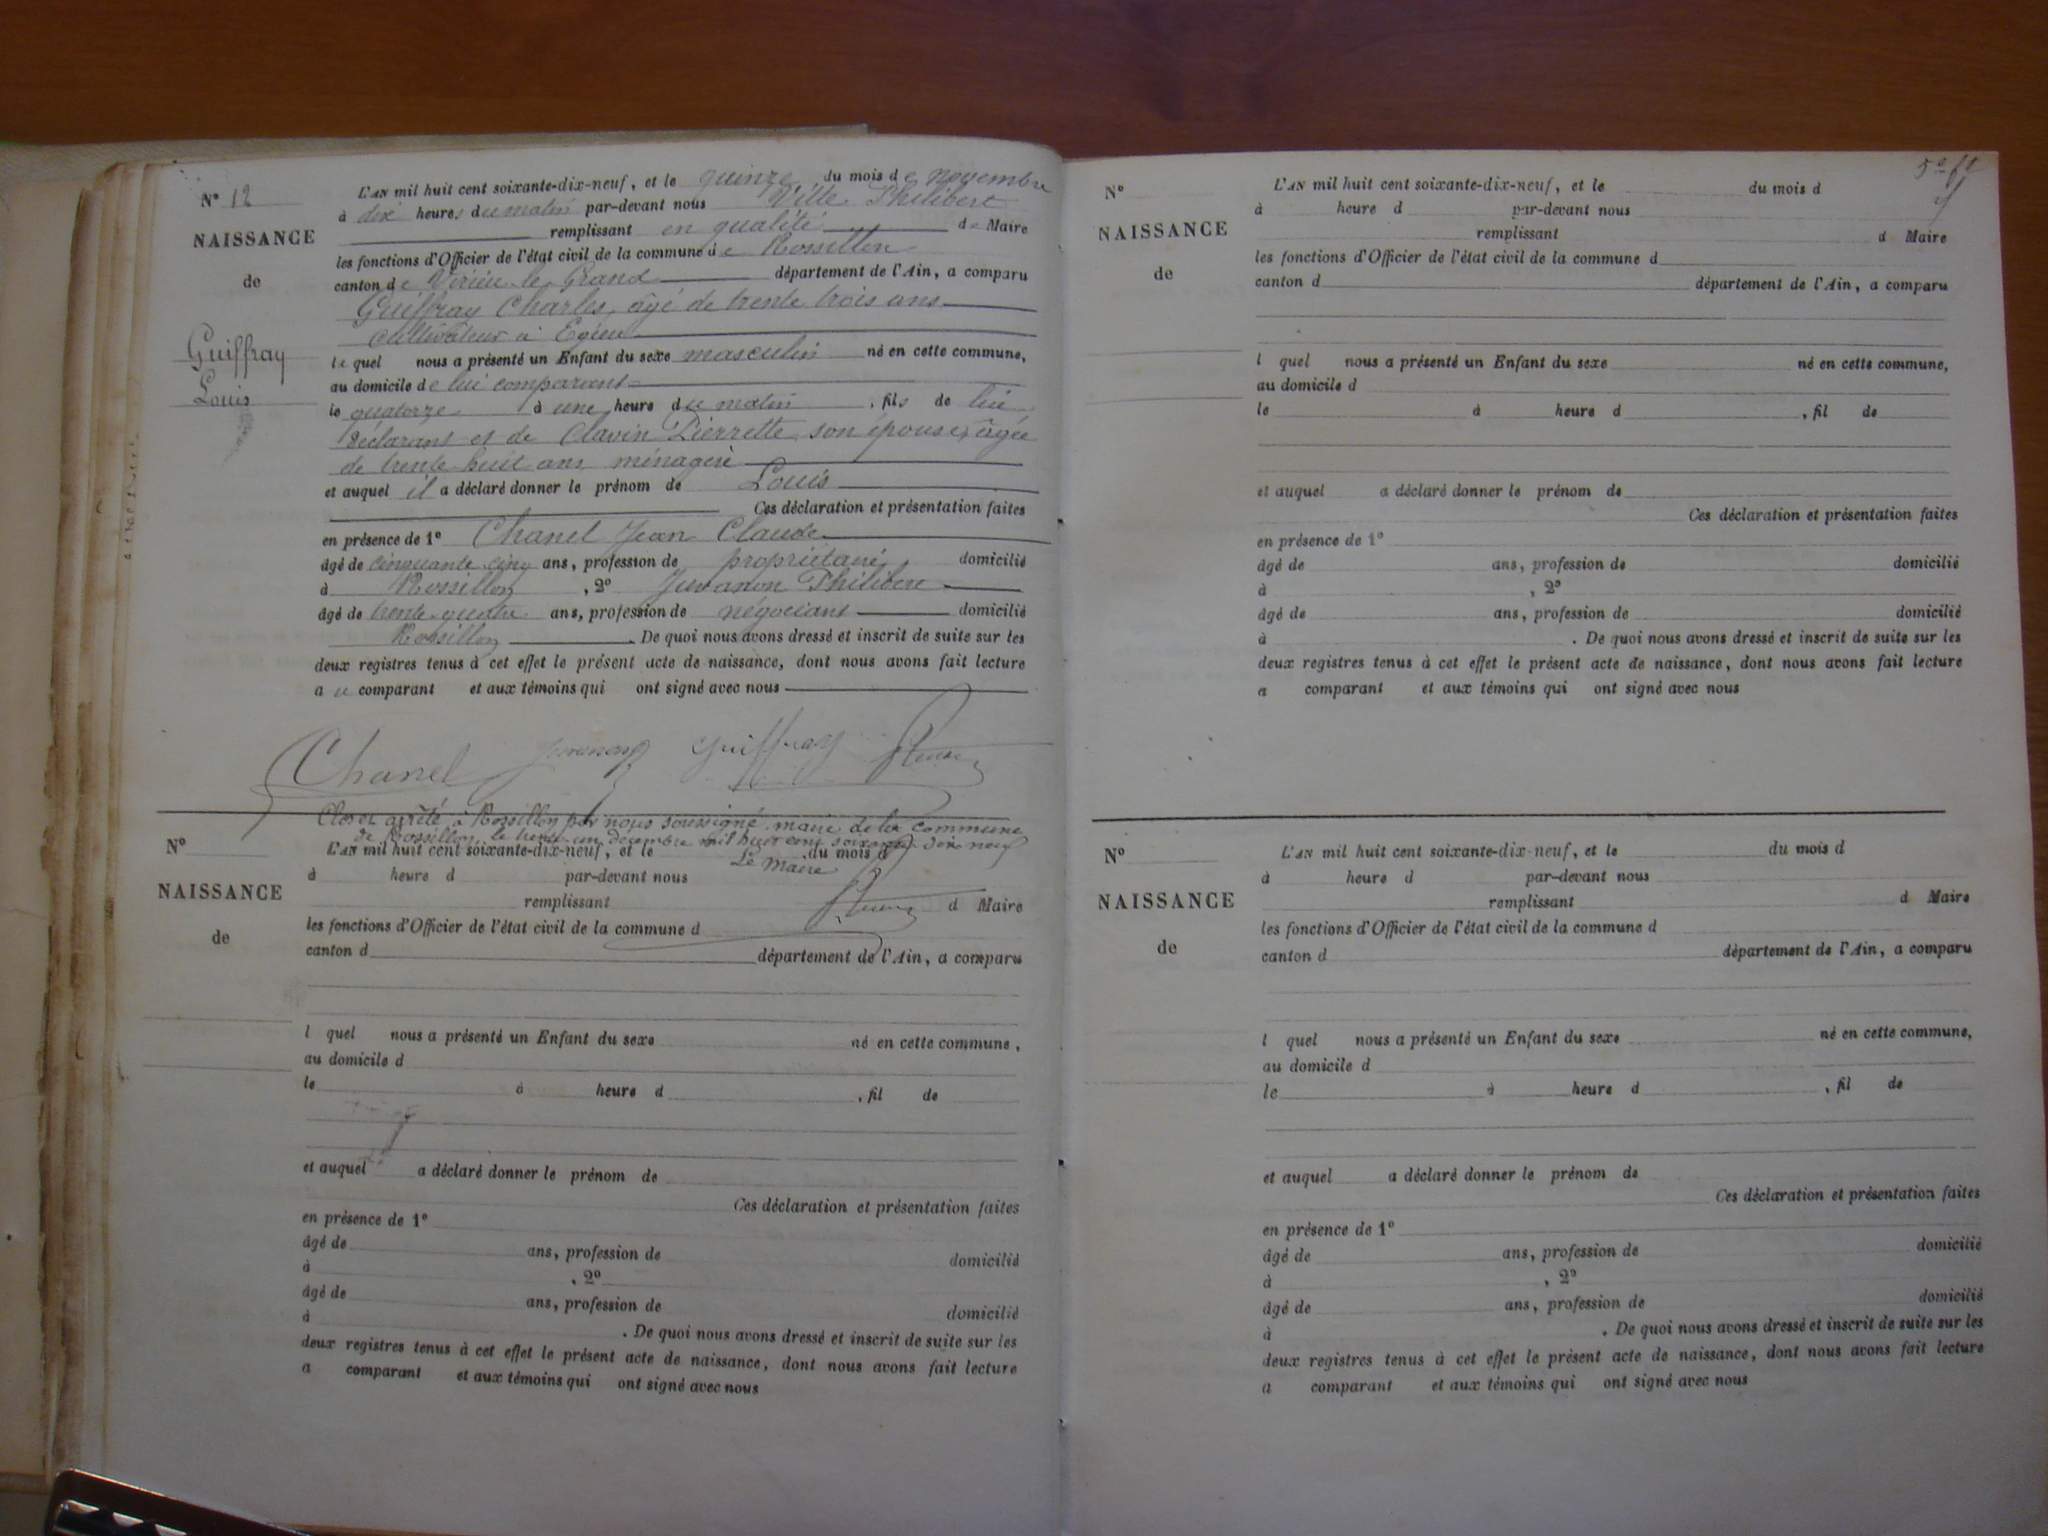 N° 12
NAISSANCE
de
Guiffray
Louis
L'AN mil huit cent soixante-dix-neuf, et le quinze du mois de novembre
à dix heures du matin par-devant nous Ville Philibert
remplissant en qualité de Maire
les fonctions d'Officier de l'état civil de la commune de Rossillon
canton de Virieu-le-Grand département de l'Ain, a comparu
Guiffray Charles, âgé de trente trois ans
cultivateur à Egieu
lequel nous a présenté un Enfant du sexe masculin né en cette commune,
au domicile de lui comparant
le quatorze à une heure du matin, fils de lui
déclarant et de Clavin Pierrette son épouse, âgée
de trente huit ans ménagère
et auquel il a déclaré donner le prénom de Louis
Ces déclaration et présentation faites
en présence de 1° Chanel Jean Claude
âgé de cinquante cinq ans, profession de propriétaire domicilié
à Rossillon, 2° Juvanon Philibert
âgé de trente quatre ans, profession de négociant domicilié
Rossillon. De quoi nous avons dressé et inscrit de suite sur les
deux registres tenus à cet effet le présent acte de naissance, dont nous avons fait lecture
au comparant et aux témoins qui ont signé avec nous
Chanel Juvanon Guiffray
Clos et arrêté à Rossillon par nous soussigné maire de la commune
de Rossillon, le trente un décembre mil huit cent soixante dix neuf
Le Maire
N°
NAISSANCE
de
L'AN mil huit cent soixante-dix-neuf, et le du mois d
à heure d par-devant nous
remplissant d Maire
les fonctions d'Officier de l'état civil de la commune d
canton d département de l'Ain, a comparu
l quel nous a présenté un Enfant du sexe né en cette commune,
au domicile d
le à heure d , fil de
et auquel a déclaré donner le prénom de
Ces déclaration et présentation faites
en présence de 1°
âgé de ans, profession de domicilié
à , 2°
âgé de ans, profession de domicilié
à . De quoi nous avons dressé et inscrit de suite sur les
deux registres tenus à cet effet le présent acte de naissance, dont nous avons fait lecture
a comparant et aux témoins qui ont signé avec nous
N°
NAISSANCE
de
L'AN mil huit cent soixante-dix-neuf, et le du mois d
à heure d par-devant nous
remplissant d Maire
les fonctions d'Officier de l'état civil de la commune d
canton d département de l'Ain, a comparu
l quel nous a présenté un Enfant du sexe né en cette commune,
au domicile d
le à heure d , fil de
et auquel a déclaré donner le prénom de
Ces déclaration et présentation faites
en présence de 1°
âgé de ans, profession de domicilié
à , 2°
âgé de ans, profession de domicilié
à . De quoi nous avons dressé et inscrit de suite sur les
deux registres tenus à cet effet le présent acte de naissance, dont nous avons fait lecture
a comparant et aux témoins qui ont signé avec nous
N°
NAISSANCE
de
L'AN mil huit cent soixante-dix-neuf, et le du mois d
à heure d par-devant nous
remplissant d Maire
les fonctions d'Officier de l'état civil de la commune d
canton d département de l'Ain, a comparu
l quel nous a présenté un Enfant du sexe né en cette commune,
au domicile d
le à heure d , fil de
et auquel a déclaré donner le prénom de
Ces déclaration et présentation faites
en présence de 1°
âgé de ans, profession de domicilié
à , 2°
âgé de ans, profession de domicilié
à . De quoi nous avons dressé et inscrit de suite sur les
deux registres tenus à cet effet le présent acte de naissance, dont nous avons fait lecture
a comparant et aux témoins qui ont signé avec nous